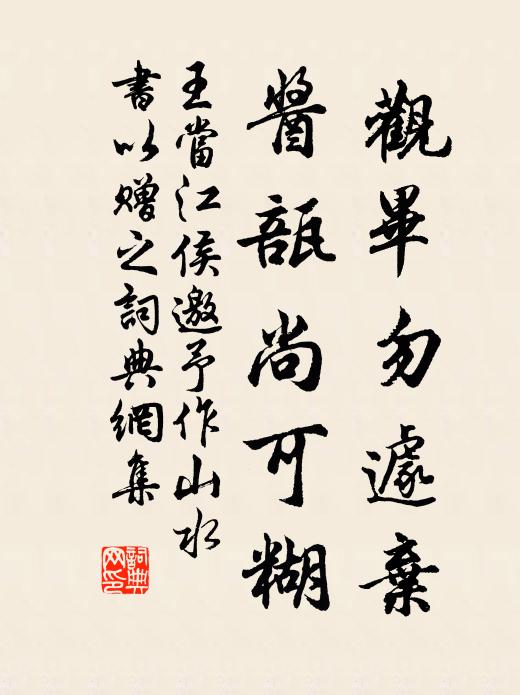 觀畢勿遽棄
醬瓿尚可糊
王當江侯邀予作山水
書以贈之詞典網集
詞典網印